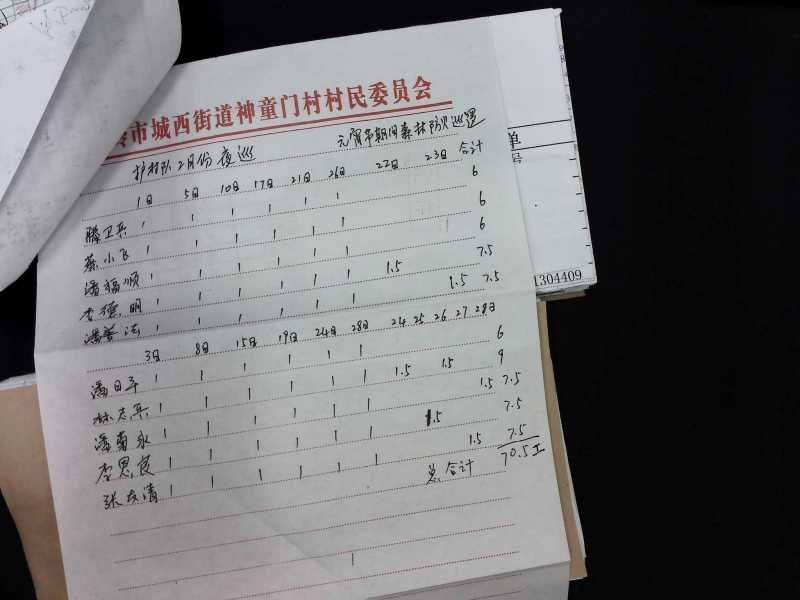 市城西街道神童门村村民委员会
护村队2月份夜巡 元宵节期间森林防火巡逻
1日 5日 10日 17日 21日 26日 22日 23日 合计
滕卫兵 1 1 1 1 1 1 6
蔡小飞 1 1 1 1 1 1 6
潘福顺 1 1 1 1 1 1 6
李德明 1 1 1 1 1 1 1.5 7.5
潘善法 1 1 1 1 1 1 1.5 7.5
3日 8日 15日 19日 24日 28日 24 25 26 27 28日
潘日平 1 1 1 1 1 1 6
林夫兵 1 1 1 1 1 1 1.5 1.5 9
潘菊永 1 1 1 1 1 1 1.5 7.5
李思良 1 1 1 1 1 1 1.5 7.5
张友清 1 1 1 1 1 1 1.5 7.5
总合计 70.5工
单
号
1304409